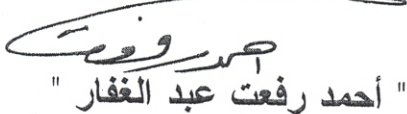 أحمد رفعت
" أحمد رفعت عبد الغفار "